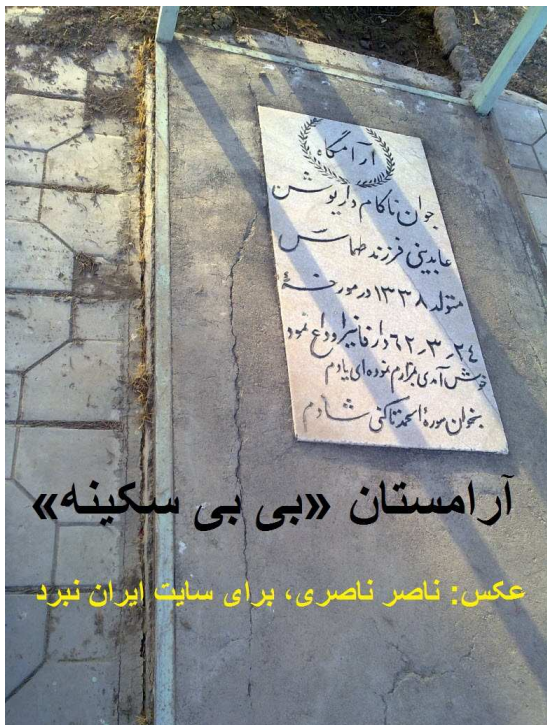 آرامگاه
جوان ناکام داریوش
عابدینی فرزند طهماسب
متولد ۱۳۳۸ در مورخهٔ
۲۴ ر ۳ ر ۶۲ دار فانی را وداع نمود
خوش آمدی بمزارم نموده‌ای یادم
بخوان سورهٔ الحمد تا کنی شادم
آرامستان «بی بی سکینه»
عکس: ناصر ناصری، برای سایت ایران نبرد